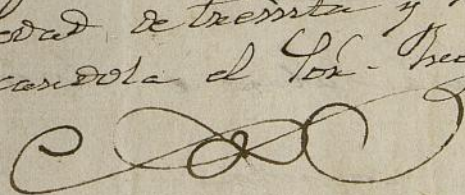 edad de treinta y
candola el Sor.